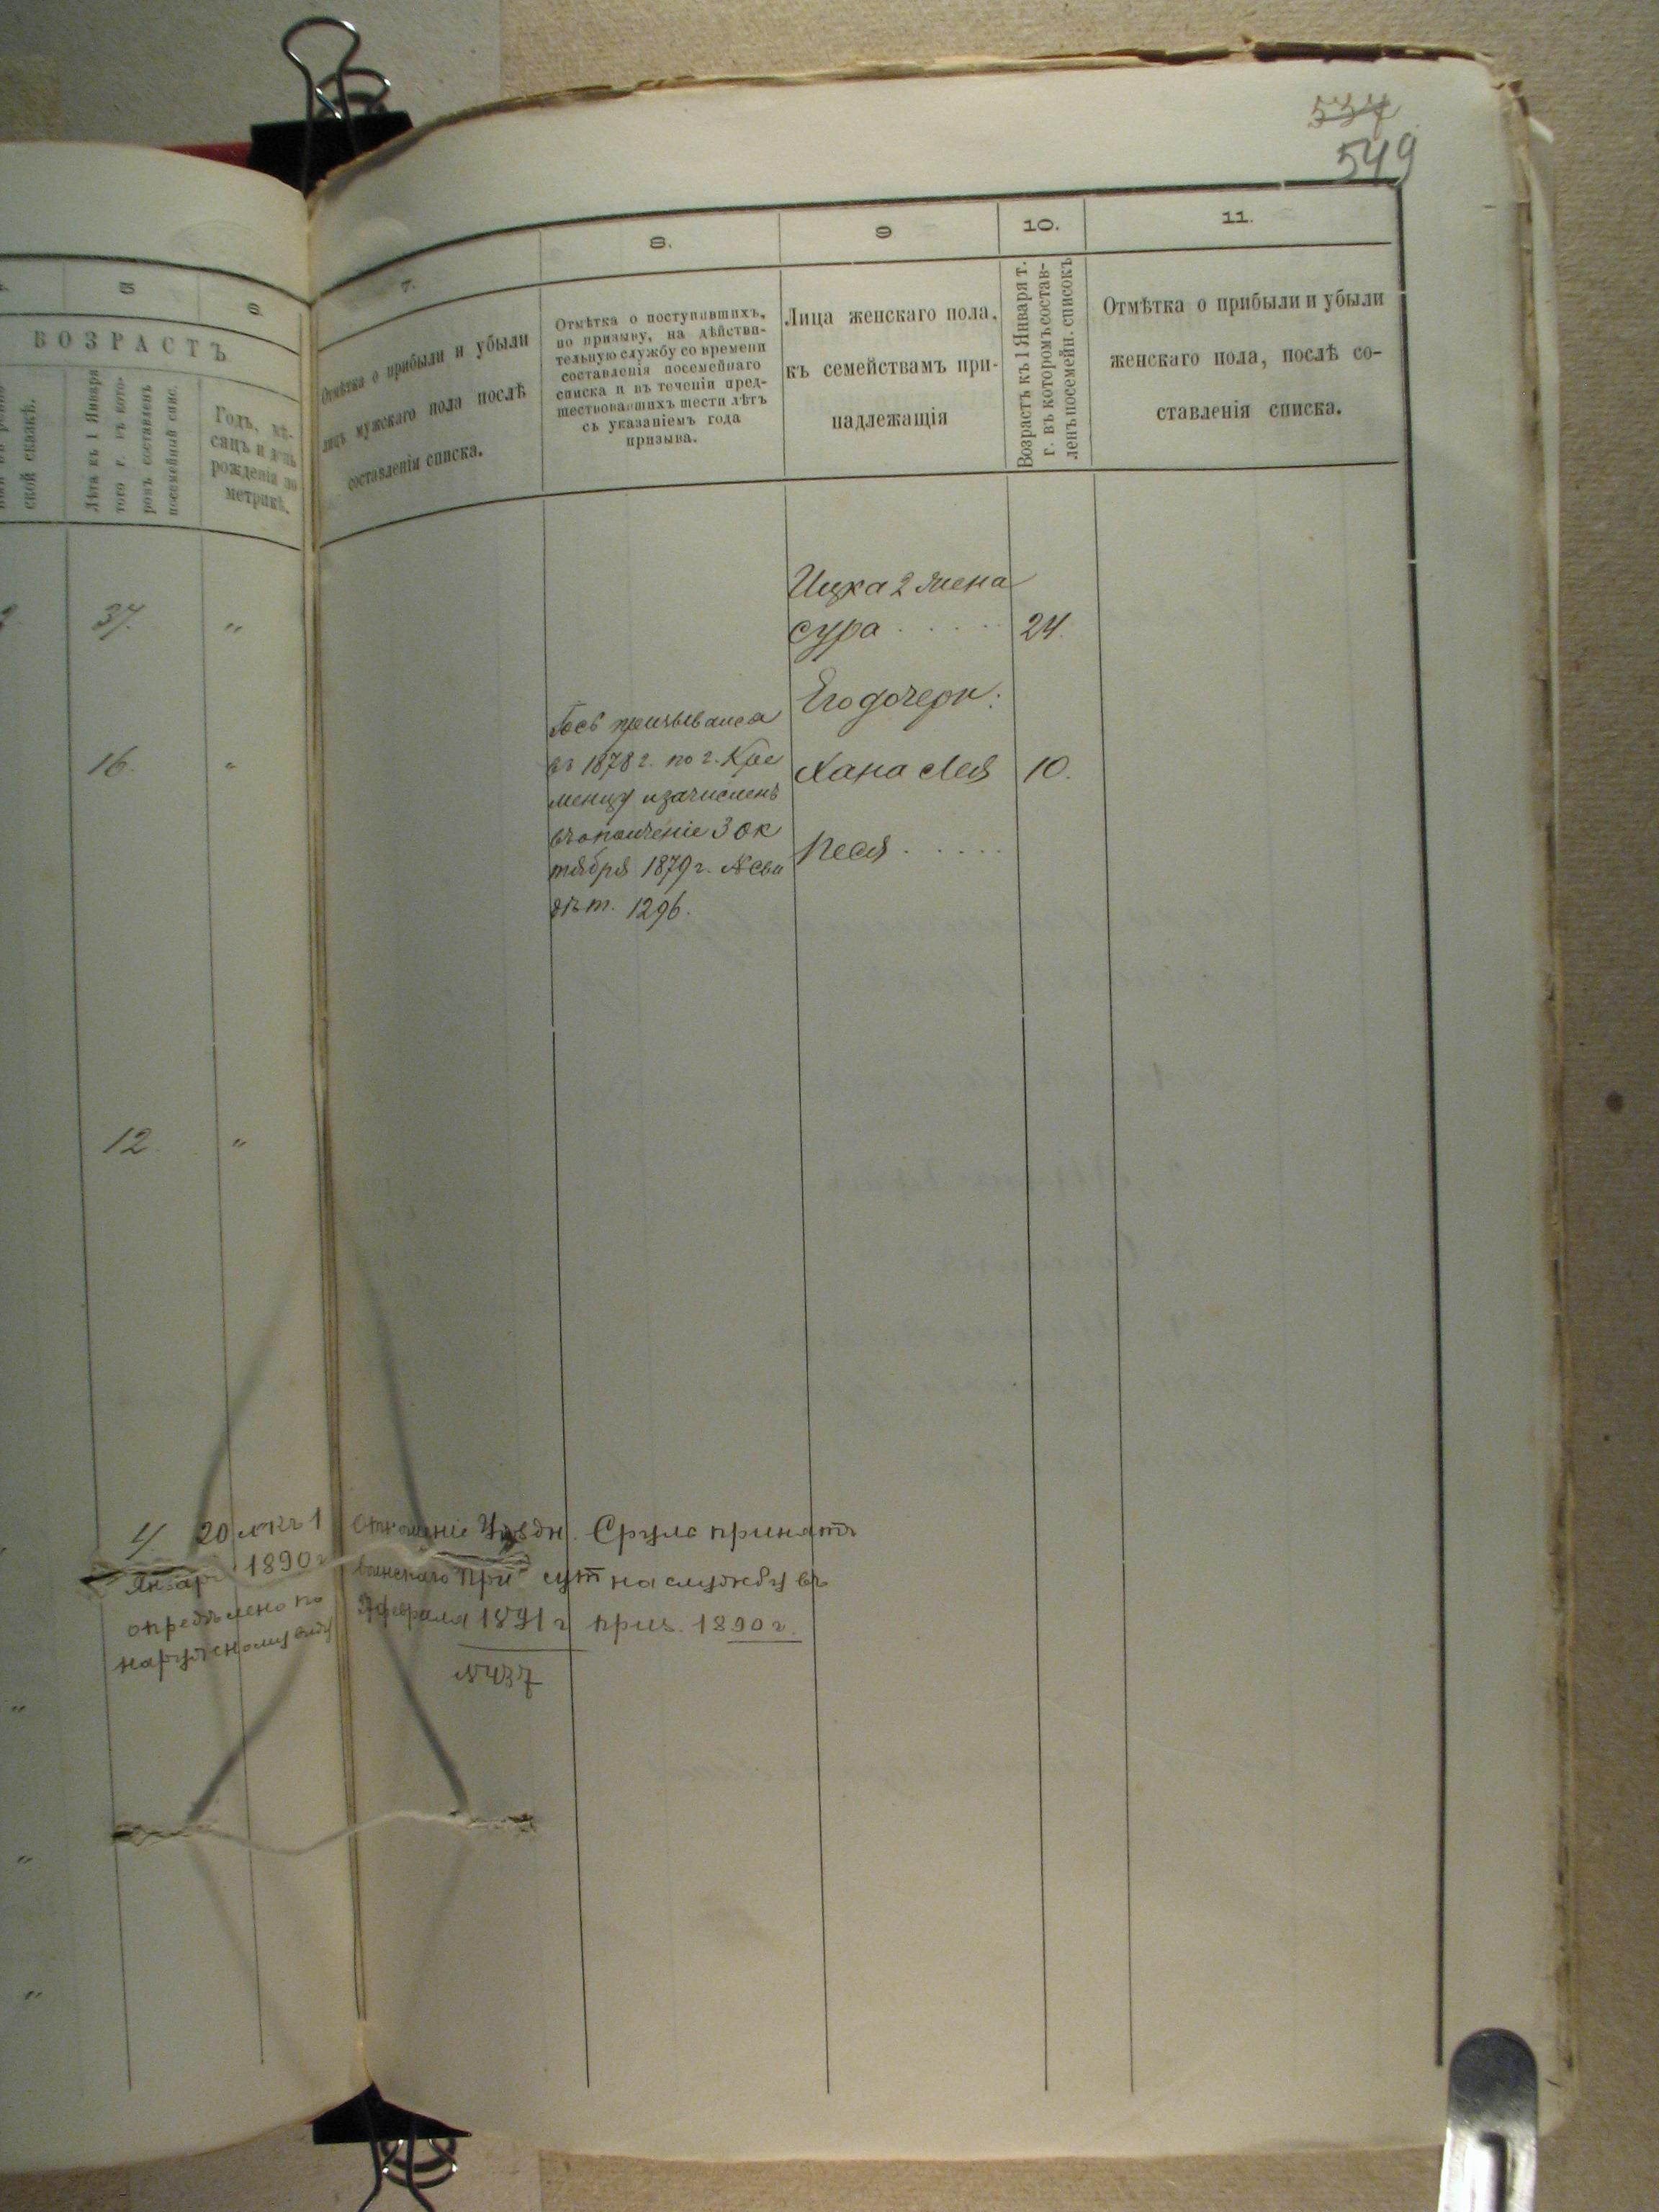 537
549
5
6.
7.
8.
9
10.
11.
ВОЗРАСТЪ
ской сказкѣ.
Лѣта къ 1 Января
того г. въ кото-
ромъ составленъ
посемейный спис.
Годъ, мѣ-
сяцъ и день
рожденія по
метрикѣ.
Отмѣтка о прибыли и убыли
лицъ мужскаго пола послѣ
составленія списка.
Отмѣтка о поступившихъ,
по призыву, на дѣйстви-
тельную службу со времени
составленія посемейнаго
списка и въ теченіи пред-
шествовавшихъ шести лѣтъ
съ указаніемъ года
призыва.
Лица женскаго пола,
къ семействамъ при-
надлежащія
Возрастъ къ 1 Января т.
г. въ которомъ состав-
ленъ посемейн. списокъ
Отмѣтка о прибыли и убыли
женскаго пола, послѣ со-
ставленія списка.
37. "
Ицка 2 жена
сура . . . . . 24.
Его дочери:
16. "
Хана Лея 10.
Песя . . . . .
призывался
въ 1878 г. по г. Кре
менцу и зачисленъ
въ ополченіе 3 Ок
тября 1879 г. № сви
дѣт. 1296.
12. "
4 20 л. къ 1
Январ 1890 г
опредѣлено по
наружному виду
Отношеніе Уѣздн.
воинскаго при сут
февраля 1891 г
№ 437
Сруль принятъ
на службу въ
приз. 1890 г.
"
"
"